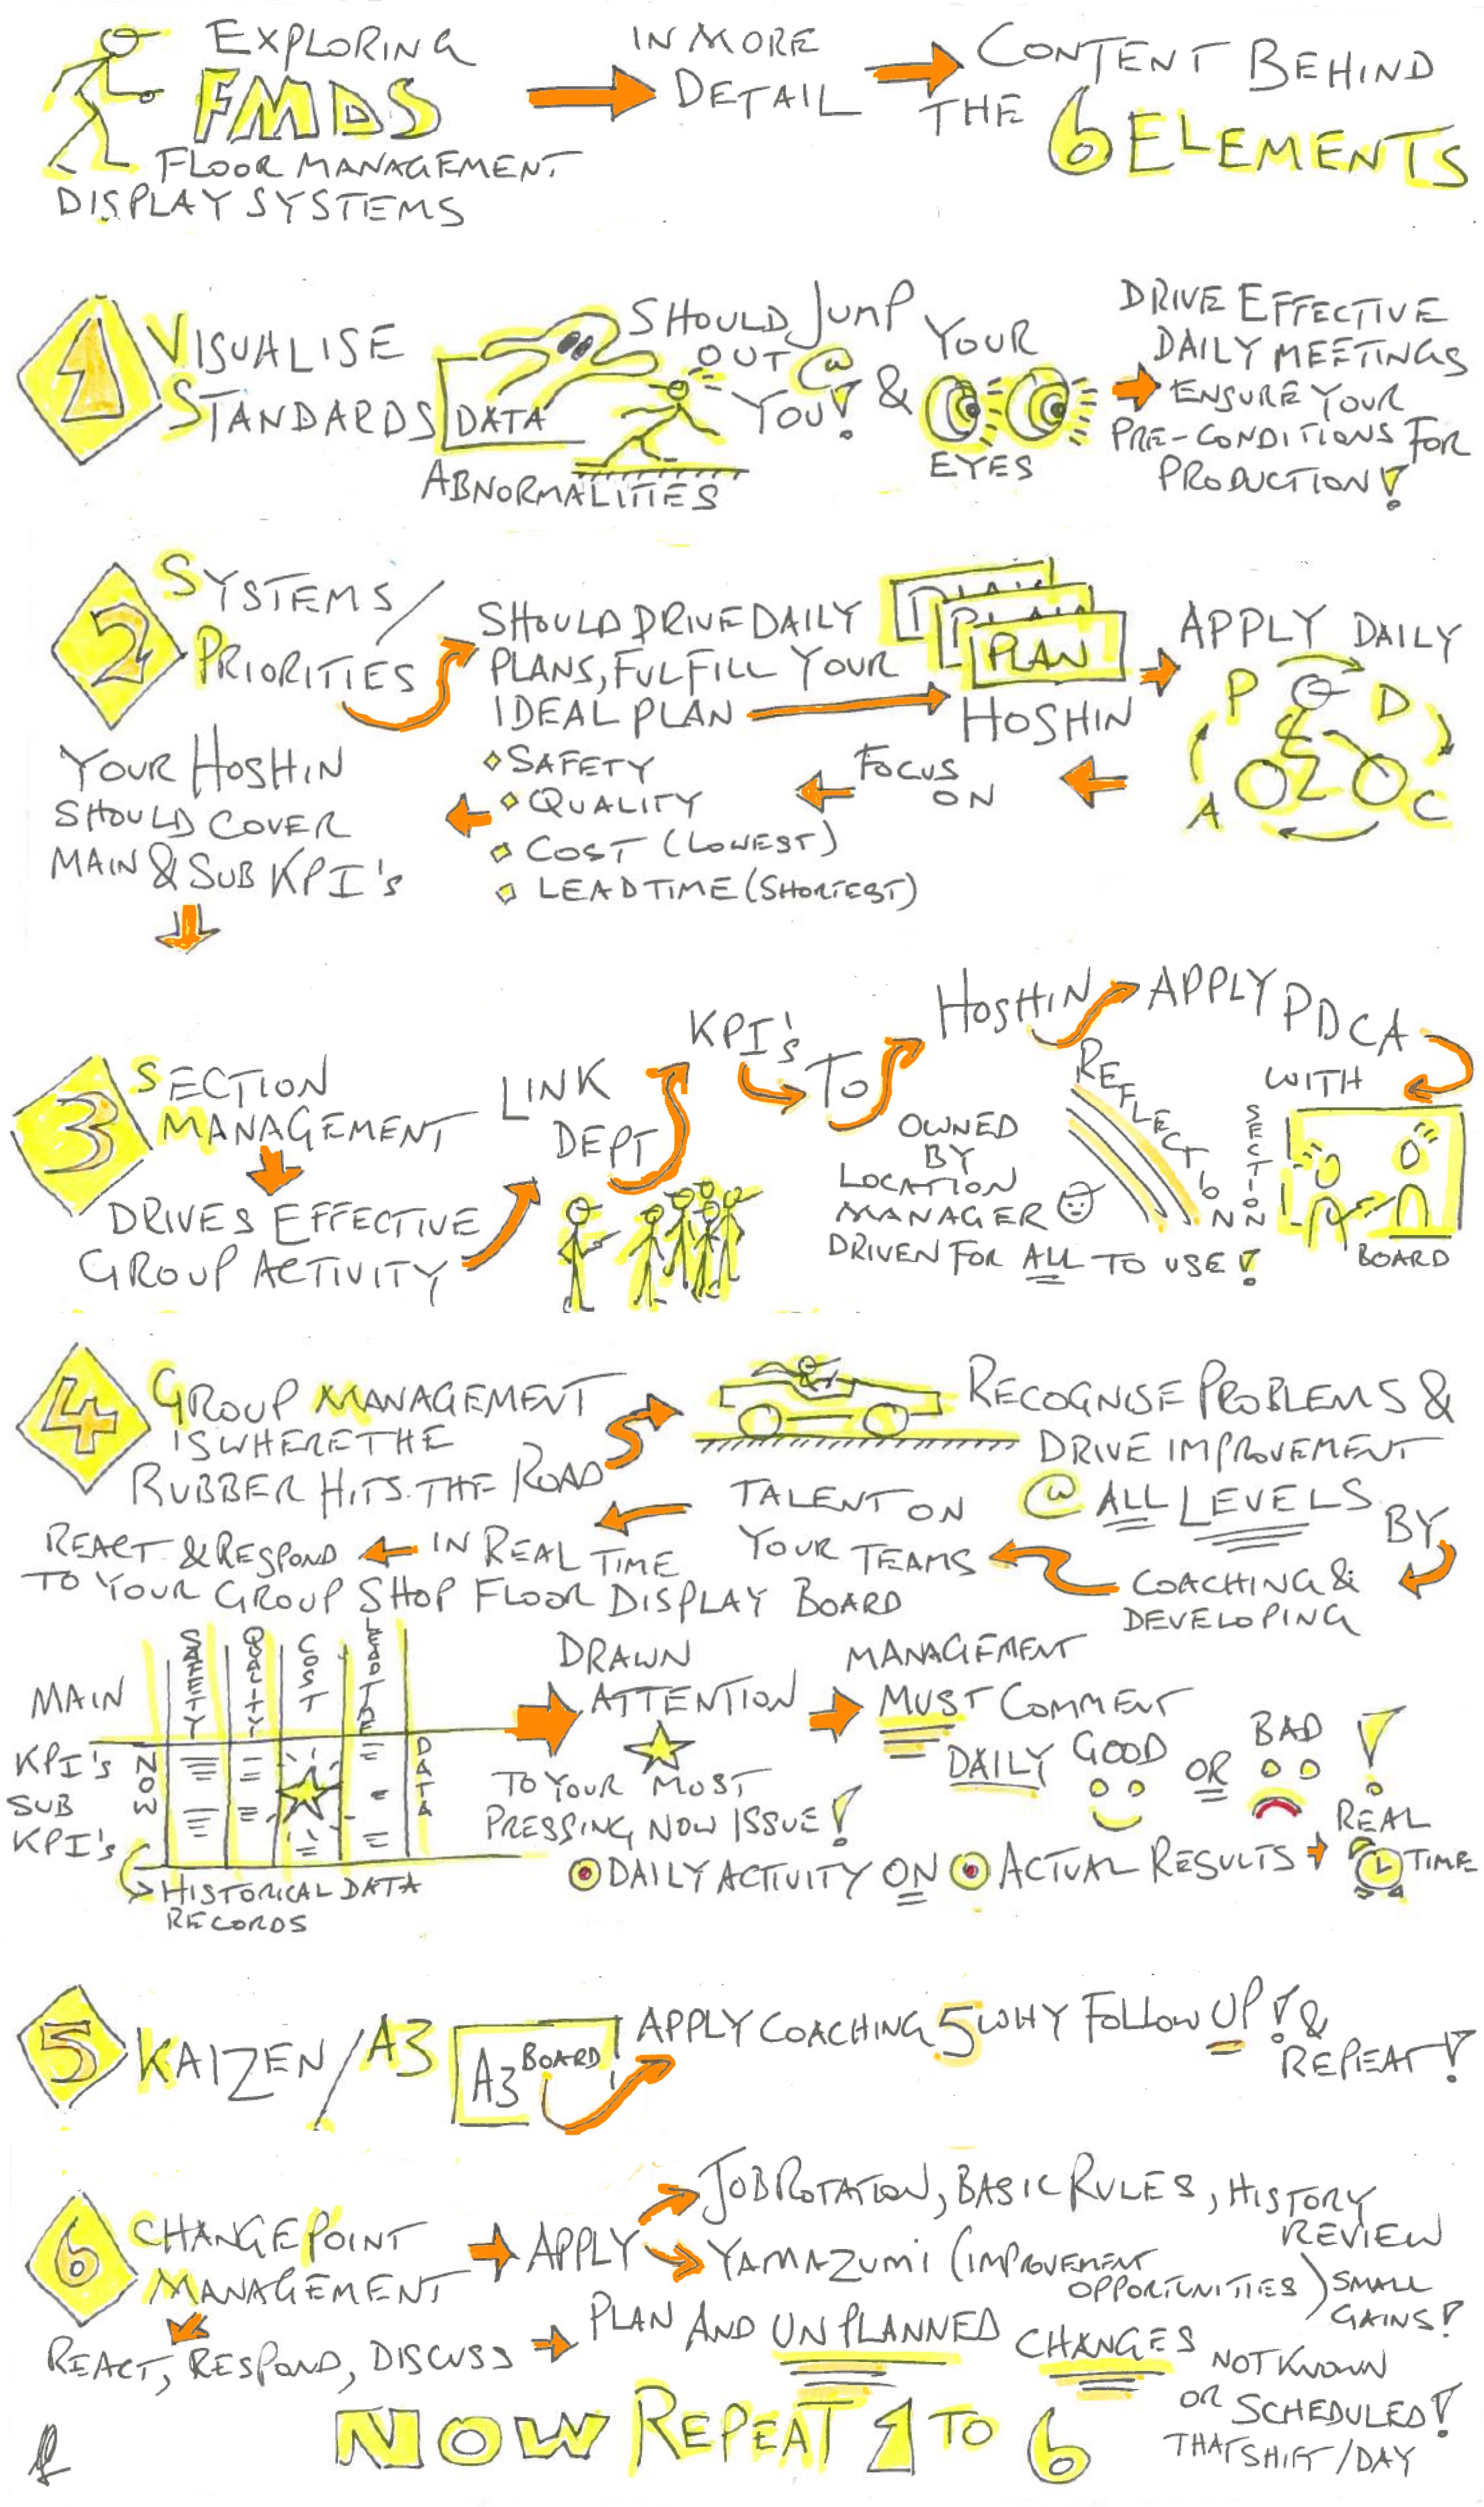 EXPLORING
FMDS
FLOOR MANAGEMENT
DISPLAY SYSTEMS
IN MORE
DETAIL
CONTENT BEHIND
THE 6 ELEMENTS
1 VISUALISE
STANDARDS
DATA
ABNORMALITIES
SHOULD JUMP
OUT @
YOU! &
YOUR
EYES
DRIVE EFFECTIVE
DAILY MEETINGS
ENSURE YOUR
PRE-CONDITIONS FOR
PRODUCTION!
2 SYSTEMS/
PRIORITIES
SHOULD DRIVE DAILY
PLANS, FULFILL YOUR
IDEAL PLAN
PLAN
PLAN
PLAN
HOSHIN
APPLY DAILY
P D
A C
FOCUS
ON
SAFETY
QUALITY
COST (LOWEST)
LEADTIME (SHORTEST)
YOUR HOSHIN
SHOULD COVER
MAIN & SUB KPI's
3 SECTION
MANAGEMENT
DRIVES EFFECTIVE
GROUP ACTIVITY
LINK
DEPT
KPI's
TO
HOSHIN
APPLY PDCA
WITH
SECTION
BOARD
REFLECTION
OWNED
BY
LOCATION
MANAGER
DRIVEN FOR ALL TO USE!
4 GROUP MANAGEMENT
IS WHERE THE
RUBBER HITS THE ROAD
RECOGNISE PROBLEMS &
DRIVE IMPROVEMENT
@ ALL LEVELS
BY
COACHING &
DEVELOPING
TALENT ON
YOUR TEAMS
IN REAL TIME
REACT & RESPOND
TO YOUR GROUP SHOP FLOOR DISPLAY BOARD
SAFETY QUALITY COST LEADTIME
MAIN
KPI's
SUB
KPI's
NOW
DATA
HISTORICAL DATA
RECORDS
DRAWN
ATTENTION
TO YOUR MOST
PRESSING NOW ISSUE!
MANAGEMENT
MUST COMMENT
DAILY GOOD OR BAD!
DAILY ACTIVITY ON ACTUAL RESULTS
REAL
TIME
5 KAIZEN/A3
A3 BOARD
APPLY COACHING 5 WHY FOLLOW UP! &
REPEAT!
6 CHANGE POINT
MANAGEMENT
APPLY
JOB ROTATION, BASIC RULES, HISTORY
REVIEW
YAMAZUMI (IMPROVEMENT
OPPORTUNITIES) SMALL
GAINS!
REACT, RESPOND, DISCUSS
PLAN AND UNPLANNED CHANGES
NOT KNOWN
OR SCHEDULED!
THAT SHIFT/DAY
NOW REPEAT 1 TO 6